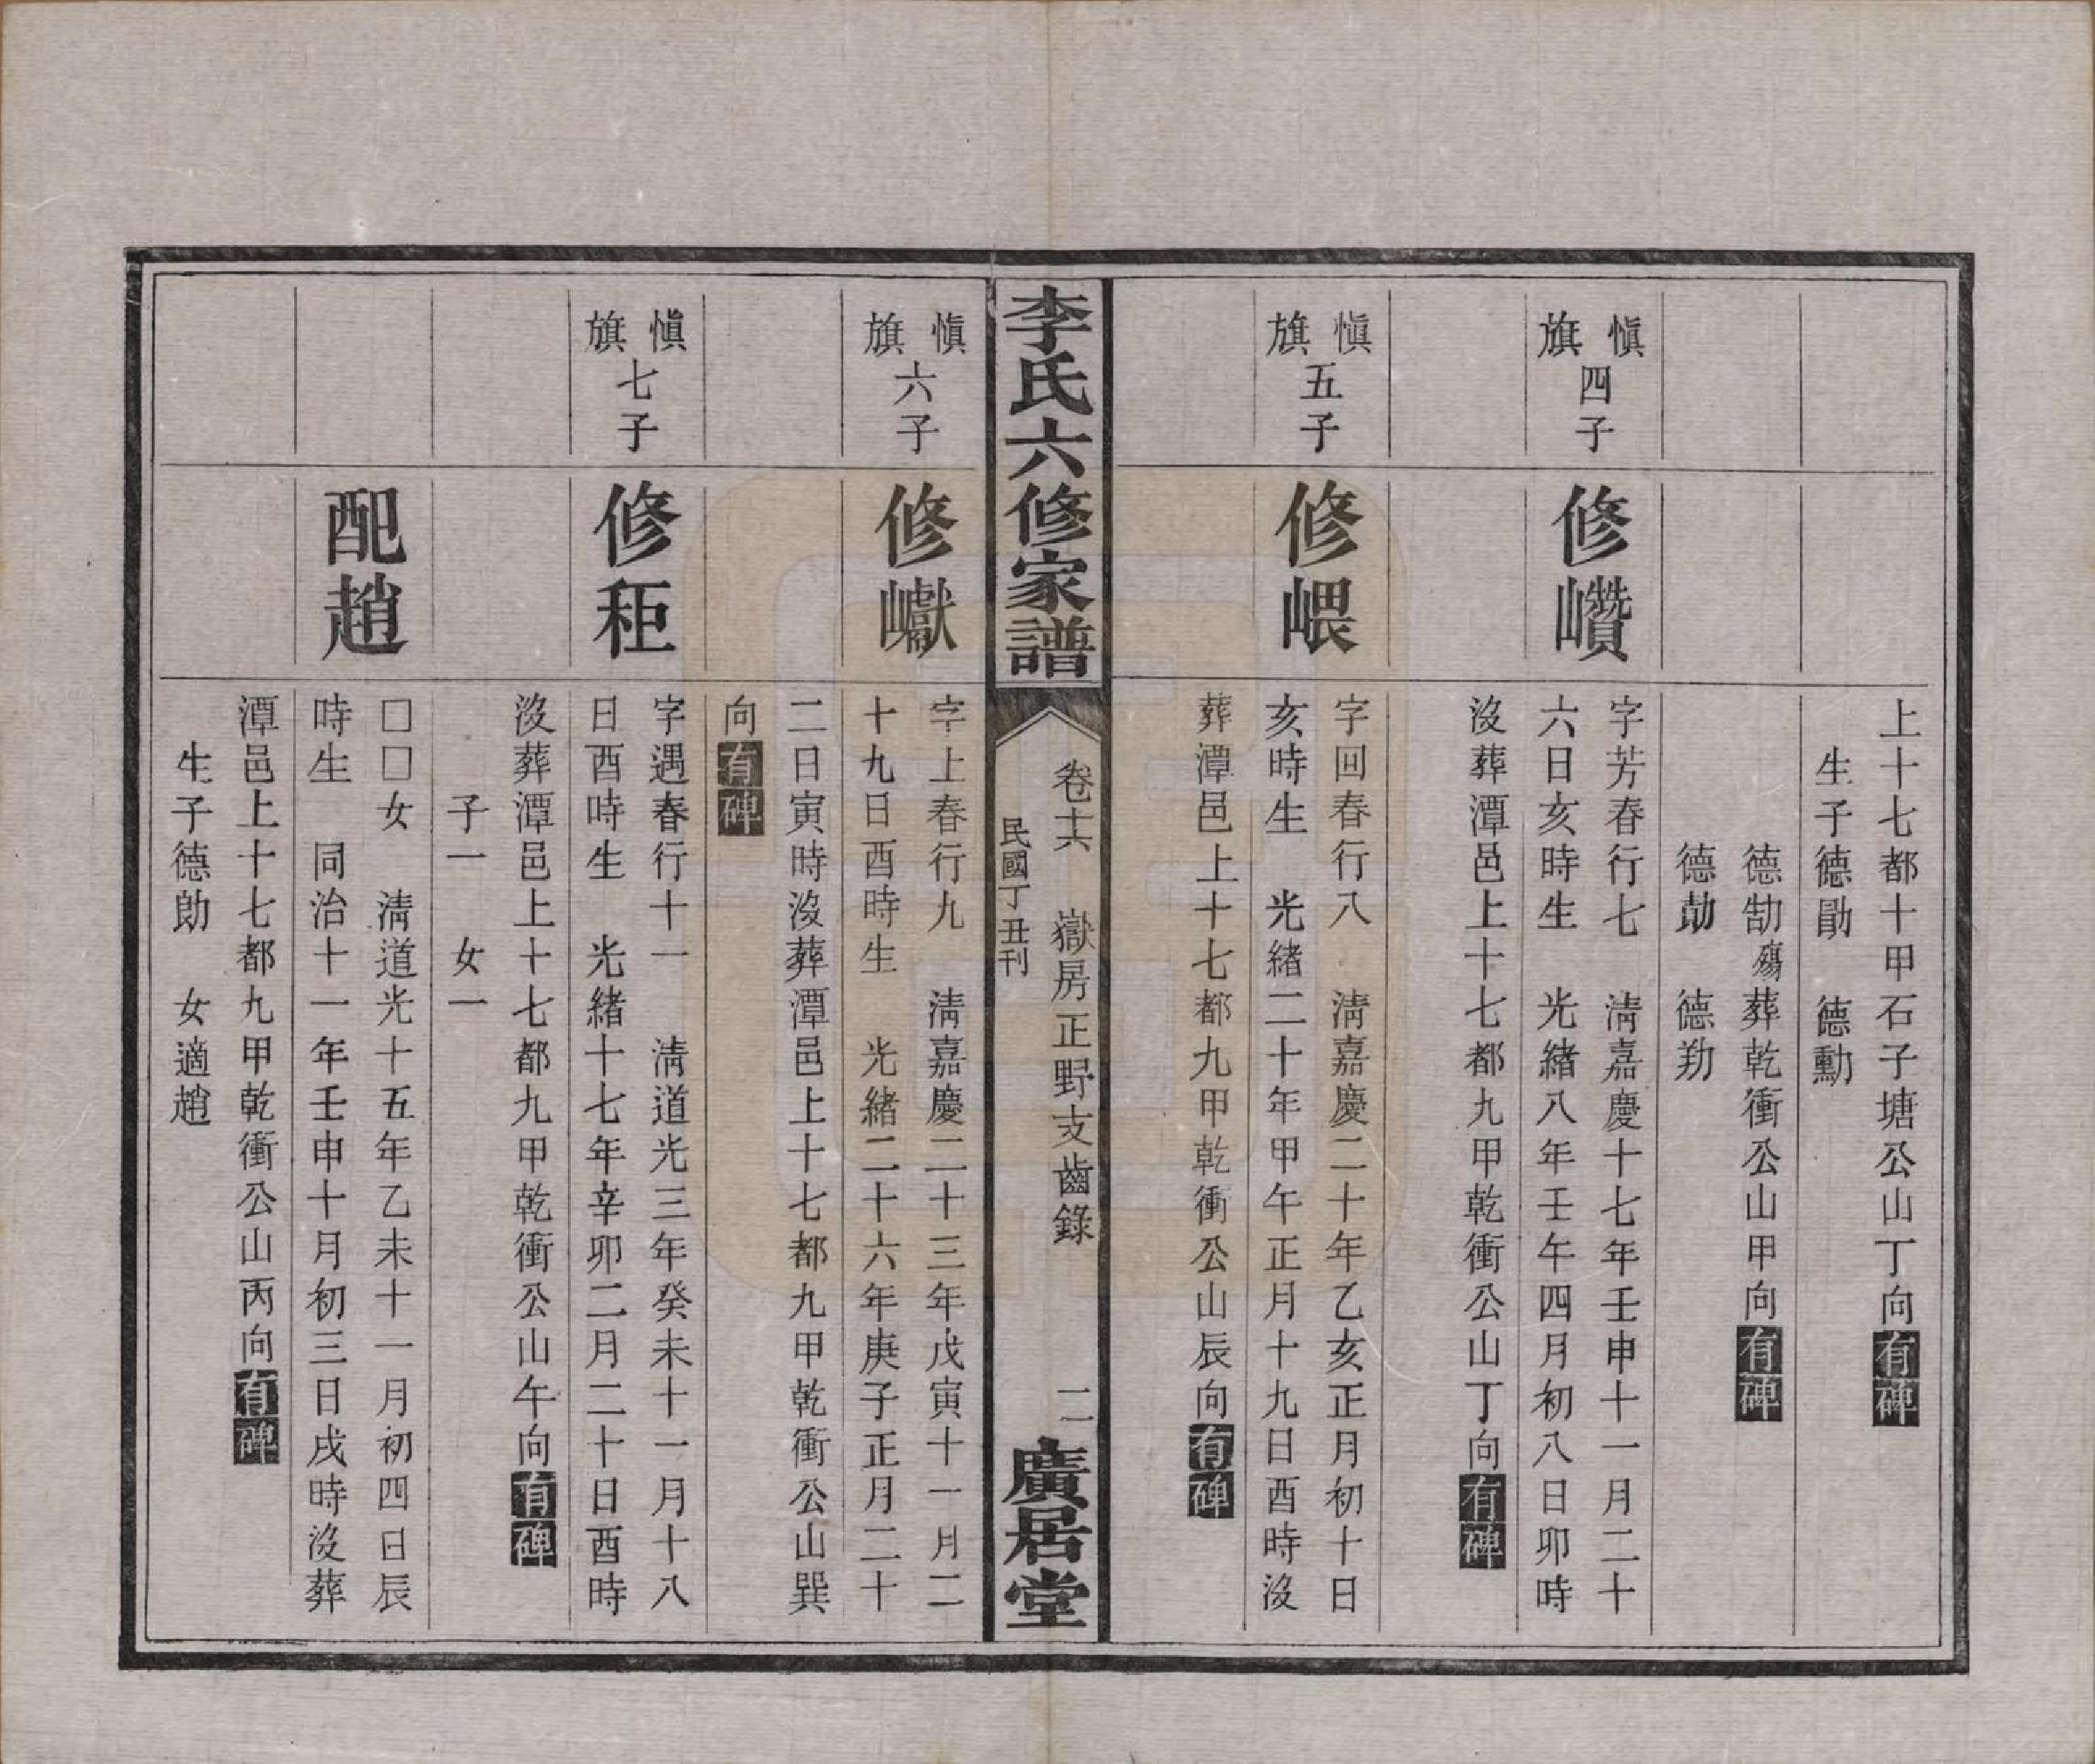 上十七都十甲石子塘公山丁向有碑
生子德勛 德勳
德勂殤葬乾衝公山甲向有碑
德勀 德勑
慎旗四子
修巑
字芳春行七 淸嘉慶十七年壬申十一月二十
六日亥時生 光緒八年壬午四月初八日卯時
沒葬潭邑上十七都九甲乾衝公山丁向有碑
慎旗五子
修嵔
字回春行八 淸嘉慶二十年乙亥正月初十日
亥時生 光緒二十年甲午正月十九日酉時沒
葬潭邑上十七都九甲乾衝公山辰向有碑
李氏六修家譜
卷十六 嶽房正野支齒錄 二
民國丁丑刊
廣居堂
慎旗六子
修巘
字上春行九 淸嘉慶二十三年戊寅十一月二
十九日酉時生 光緒二十六年庚子正月二十
二日寅時沒葬潭邑上十七都九甲乾衝公山巽
向有碑
慎旗七子
修秬
字遇春行十一 淸道光三年癸未十一月十八
日酉時生 光緒十七年辛卯二月二十日酉時
沒葬潭邑上十七都九甲乾衝公山午向有碑
子一 女一
配趙
□□女 淸道光十五年乙未十一月初四日辰
時生 同治十一年壬申十月初三日戌時沒葬
潭邑上十七都九甲乾衝公山丙向有碑
生子德勆 女適趙